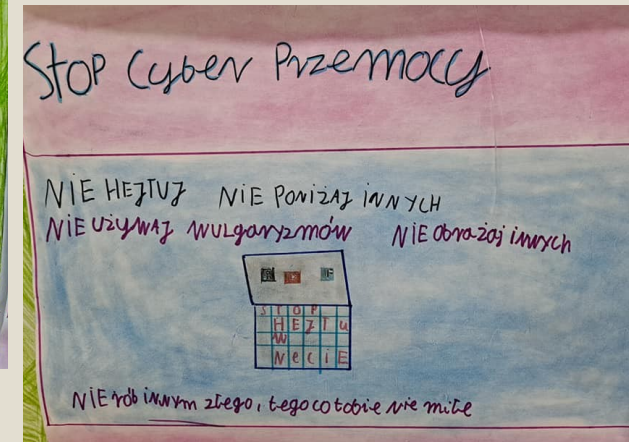 Stop Cyber Przemocy
NIE HEJTUJ NIE PONIŻAJ iNNYCH
NIE UŻYWAJ wulgaryzmów NiE obrażaj innych
STOP
HEJTU
W
NeciE
NiE rób innym złego, tego co tobie nie miłe